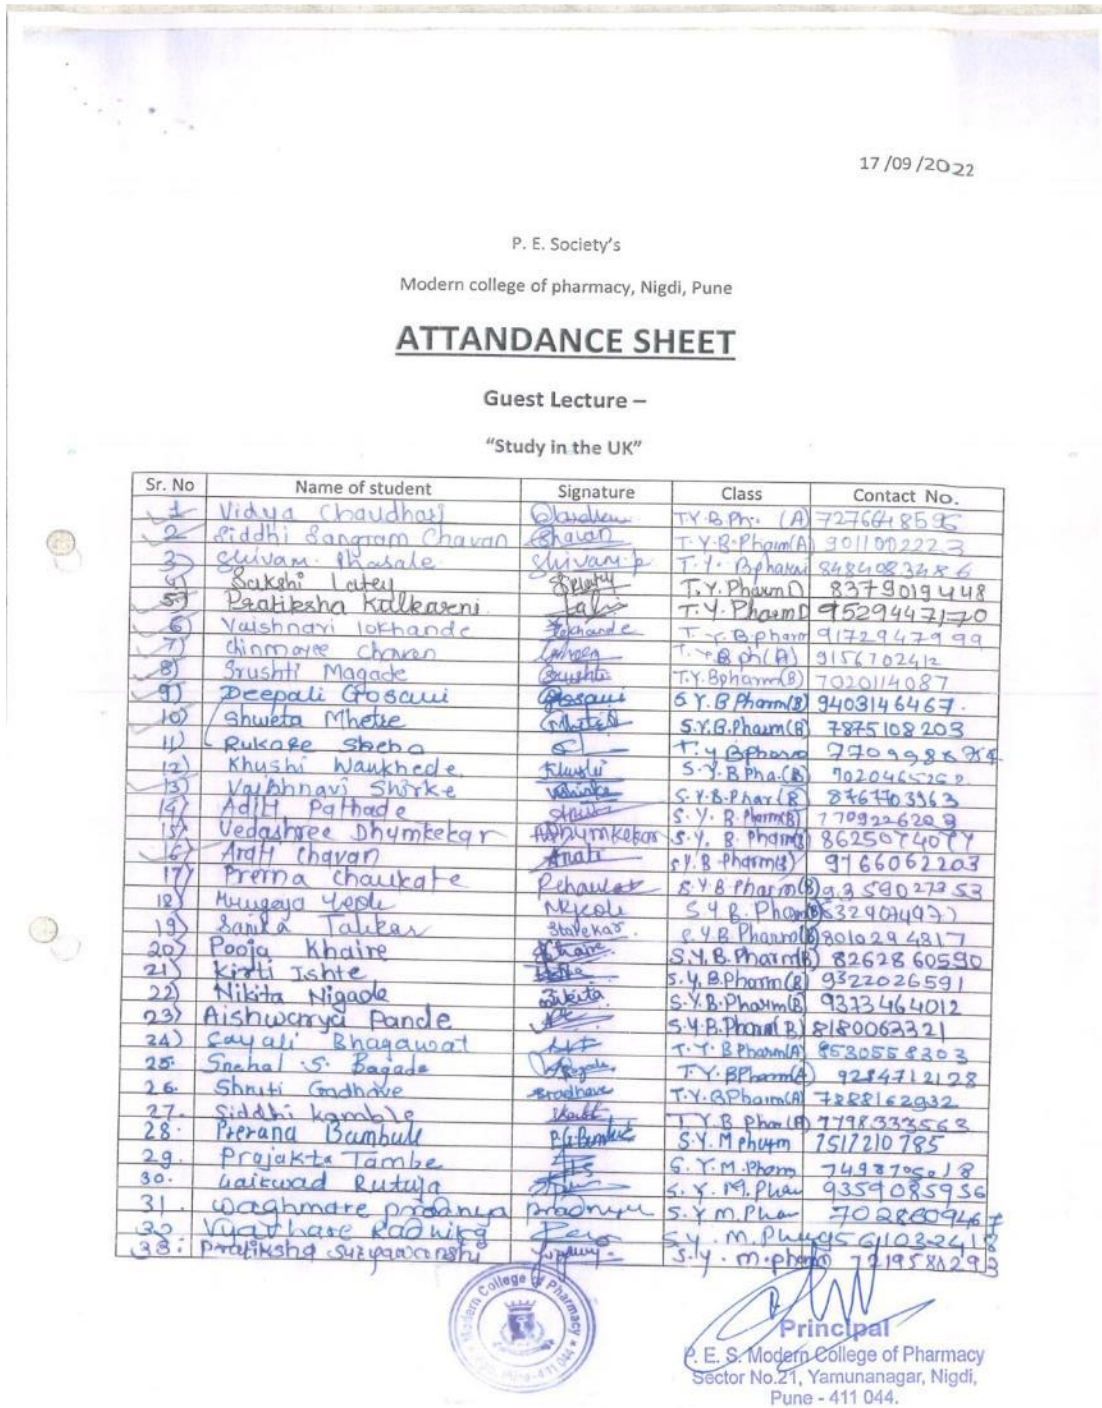 17/09/2022
P. E. Society's
Modern college of pharmacy, Nigdi, Pune
ATTANDANCE SHEET
Guest Lecture –
"Study in the UK"
Sr. No Name of student Signature Class Contact No.
1 Vidya Chaudhari T.Y.B.Ph. (A)
2 Siddhi Sangram Chavan Chavan T.Y.B.Pharm(A) 9011002223
3) Shivam Bhasale Shivam.B T.Y. Bpharm 8484083486
4) Sakshi Latey T.Y.PharmD 8379019448
5) Pratiksha Kulkarni T.Y.PharmD 9529447170
6) Vaishnavi lokhande lokhande T.Y.B.pharm 9172947999
7) Chinmayee Chavan T.Y.B ph(A) 9156702412
8) Srushti Magade Srushti T.Y.Bpharm(B) 7020114087
9) Deepali Gosavi Gosavi S.Y.B Pharm(B) 9403146467.
10) Shweta Mhetre S.Y.B.Pharm(B) 7875108203
11) Rukage Sheba T.Y Bpharm
12) Khushi Wankhede. Khushi S.Y.B Pha.(B)
13) Vaishnavi Shirke S.Y.B.Phar(B) 8767703963
14) Aditi Pathade S.Y. B.Pharm(B)
15) Vedashree Dhymkekar Dhymkekar S.Y. B.Pharm(B)
16) Arati Chavan Arati S.Y.B Pharm(B) 9766062203
17) Prerna Chaukate S.Y.B Pharm(B) 9359027353
18) S.Y.B.Pharm(B)
19) Sanika S.Y.B.Pharm(B) 8010294817
20) Pooja Khaire Khaire S.Y.B.Pharm(B) 8262860590
21) Kirti Ishte S.Y.B.Pharm(B) 9322026591
22) Nikita Nigade Nikita S.Y.B.Pharm(B) 9373464012
23) Aishwarya Pande S.Y.B.Pharm(B) 8180062321
24) Sayali Bhagawat T.Y.B Pharm(A) 8530558303
25. Snehal .S. Bagade T.Y.BPharm(A) 9284712128
26. Shruti Gadhave T.Y.BPharm(A) 7888162932
27. Siddhi Kamble T.Y.B Phar(A) 7798333563
28. Prerana Bambule S.Y.M pharm 7517210785
29. Prajakta Tambe S.Y.M.Pharm
30. Gaikwad Rutuja S.Y.M.Phar 9359085936
31. Waghmare pradnya pradnya S.Y M.Phar 7028809467
32. S.Y.M.Pharm
33. Pratiksha Suryawanshi S.Y.M.pharm
Modern College of Pharmacy
Pune-411 044
Principal
P. E. S. Modern College of Pharmacy
Sector No.21, Yamunanagar, Nigdi,
Pune - 411 044.